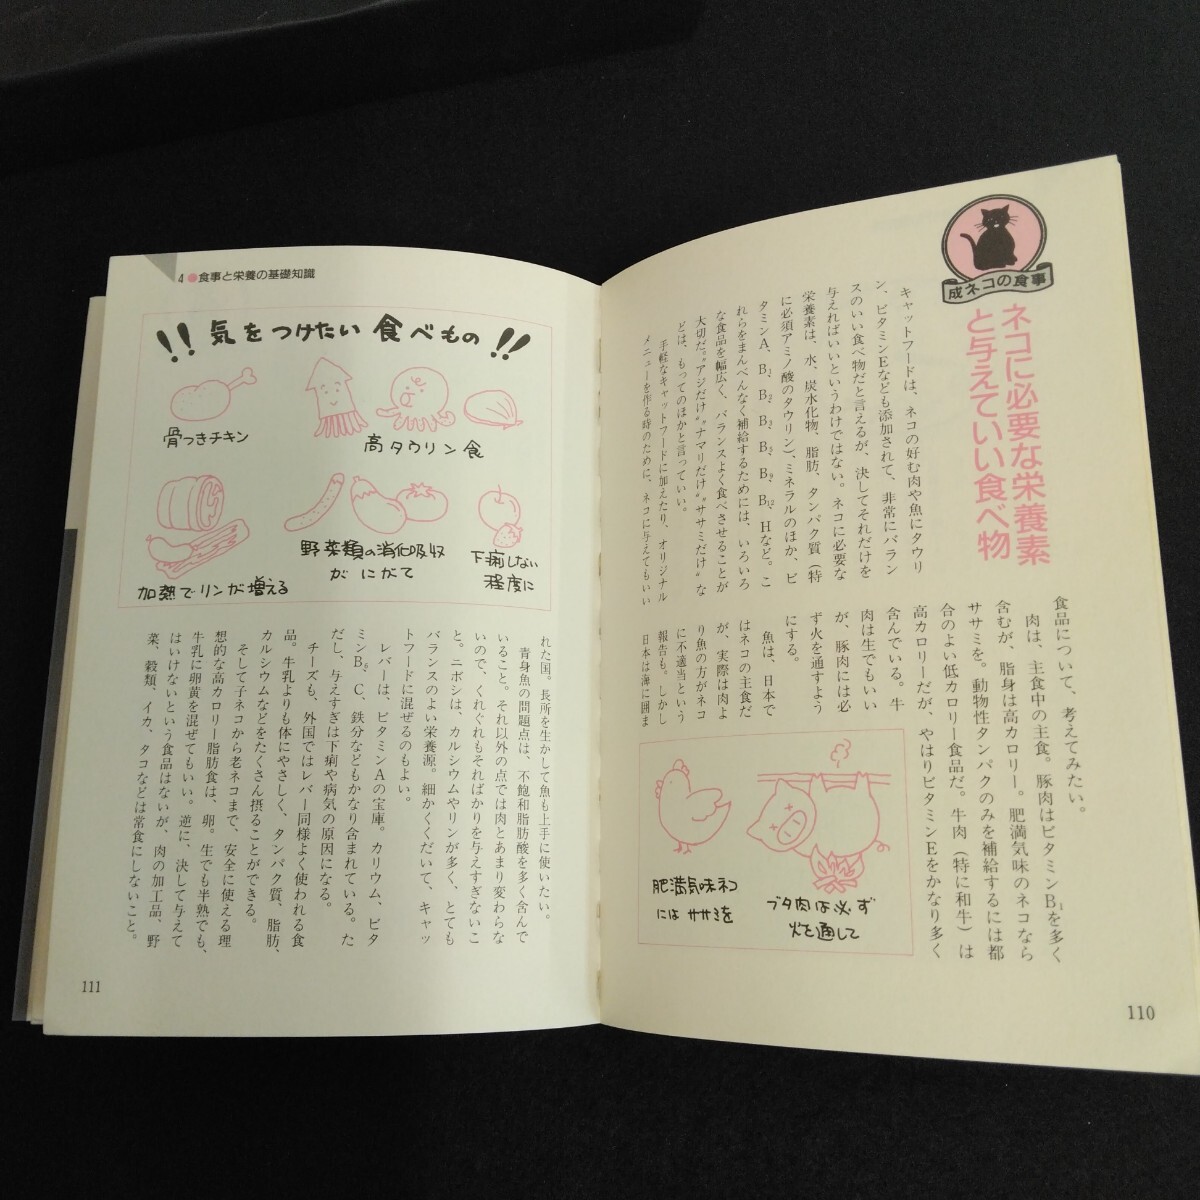 成ネコの食事
ネコに必要な栄養素
と与えていい食べ物
キャットフードは、ネコの好む肉や魚にタウリ
ン、ビタミンEなども添加されて、非常にバラン
スのいい食べ物だと言えるが、決してそれだけを
与えればいいというわけではない。ネコに必要な
栄養素は、水、炭水化物、脂肪、タンパク質(特
に必須アミノ酸のタウリン)、ミネラルのほか、ビ
タミンA、B₁、B₂、B₃、B₅、B₉、B₁₂、Hなど。こ
れらをまんべんなく補給するためには、いろいろ
な食品を幅広く、バランスよく食べさせることが
大切だ。"アジだけ""ナマリだけ""ササミだけ"な
どは、もってのほかと言っていい。
手軽なキャットフードに加えたり、オリジナル
メニューを作る時のために、ネコに与えてもいい
食品について、考えてみたい。
肉は、主食中の主食。豚肉はビタミンB₁を多く
含むが、脂身は高カロリー。肥満気味のネコなら
ササミを。動物性タンパクのみを補給するには都
合のよい低カロリー食品だ。牛肉(特に和牛)は
高カロリーだが、やはりビタミンEをかなり多く
含んでいる。牛
肉は生でもいい
が、豚肉には必
ず火を通すよう
にする。
魚は、日本で
はネコの主食だ
が、実際は肉よ
り魚の方がネコ
に不適当という
報告も。しかし
日本は海に囲ま
肥満気味ネコ
には ササミを
ブタ肉は必ず
火を通して
110
4 食事と栄養の基礎知識
!! 気をつけたい 食べもの !!
骨つきチキン
高タウリン食
加熱でリンが増える
野菜類の消化吸収
がにがて
下痢しない
程度に
れた国。長所を生かして魚も上手に使いたい。
青身魚の問題点は、不飽和脂肪酸を多く含んで
いること。それ以外の点では肉とあまり変わらな
いので、くれぐれもそればかりを与えすぎないこ
と。ニボシは、カルシウムやリンが多く、とても
バランスのよい栄養源。細かくくだいて、キャッ
トフードに混ぜるのもよい。
レバーは、ビタミンAの宝庫。カリウム、ビタ
ミンB₆、C、鉄分などもかなり含まれている。た
だし、与えすぎは下痢や病気の原因になる。
チーズも、外国ではレバー同様よく使われる食
品。牛乳よりも体にやさしく、タンパク質、脂肪、
カルシウムなどをたくさん摂ることができる。
そして子ネコから老ネコまで、安全に使える理
想的な高カロリー脂肪食は、卵。生でも半熟でも、
牛乳に卵黄を混ぜてもいい。逆に、決して与えて
はいけないという食品はないが、肉の加工品、野
菜、穀類、イカ、タコなどは常食にしないこと。
111